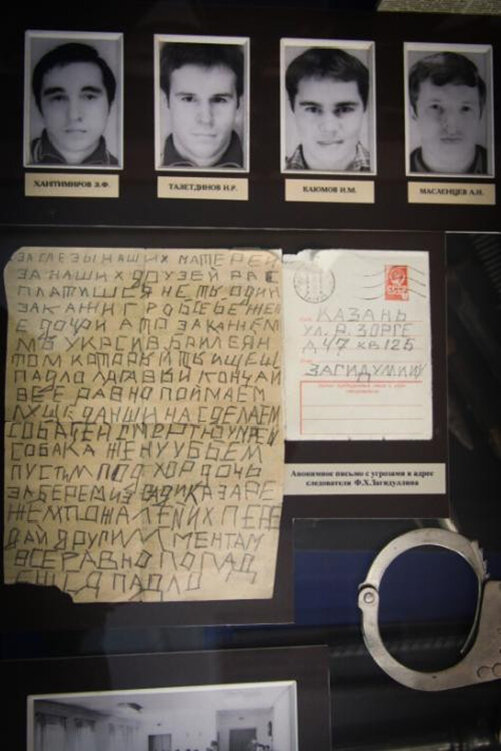 ХАНТИМИРОВ Э.Ф.
ТАЗЕТДИНОВ Н.Р.
КАЮМОВ И.М.
МАСЛЕНЦЕВ А.Н.
ЗА СЛЕЗЫ НАШИХ МАТЕРЕЙ
ЗА НАШИХ ДРУЗЕЙ РАС
ПЛАТИШСЯ НЕ ТЫ ОДИН
ЗАКАЖИ ГРОБ СЕБЕ ЖЕН
Е ДОЧРИ А ТО ЗАКАЖЕМ
МЫ УКРАСИВ БРИЛЕЯН
ТОМ КАТОРЫЙ ТЫ ИЩЕШ
ПАДЛО ЛЯГАВЫЙ КОНЧАЙ
ВСЕ РАВНО ПОЙМАЕМ
НА СДЕЛАЕМ
СОБАЧЕЙ СМЕРТЮ УМРЕШ
СОБАКА ЖЕНУ УБЪЕМ
ПУСТИМ ПОД ХОР ДОЧЬ
ЗАБЕРЕМ ИЗ ЗАРЕ
ЖЕМ ПОЖАЛЕЙ ИХ ПЕРЕ
ДАЙ ДРУГИМ МЕНТАМ
ВСЕ РАВНО ПОПАД
ЕШСЯ ПАДЛО
КАЗАНЬ
УЛ. Р. ЗОРГЕ
Д 47 КВ 125
ЗАГИДУЛИНУ
Анонимное письмо с угрозами в адрес
следователя Ф.Х.Загидуллина